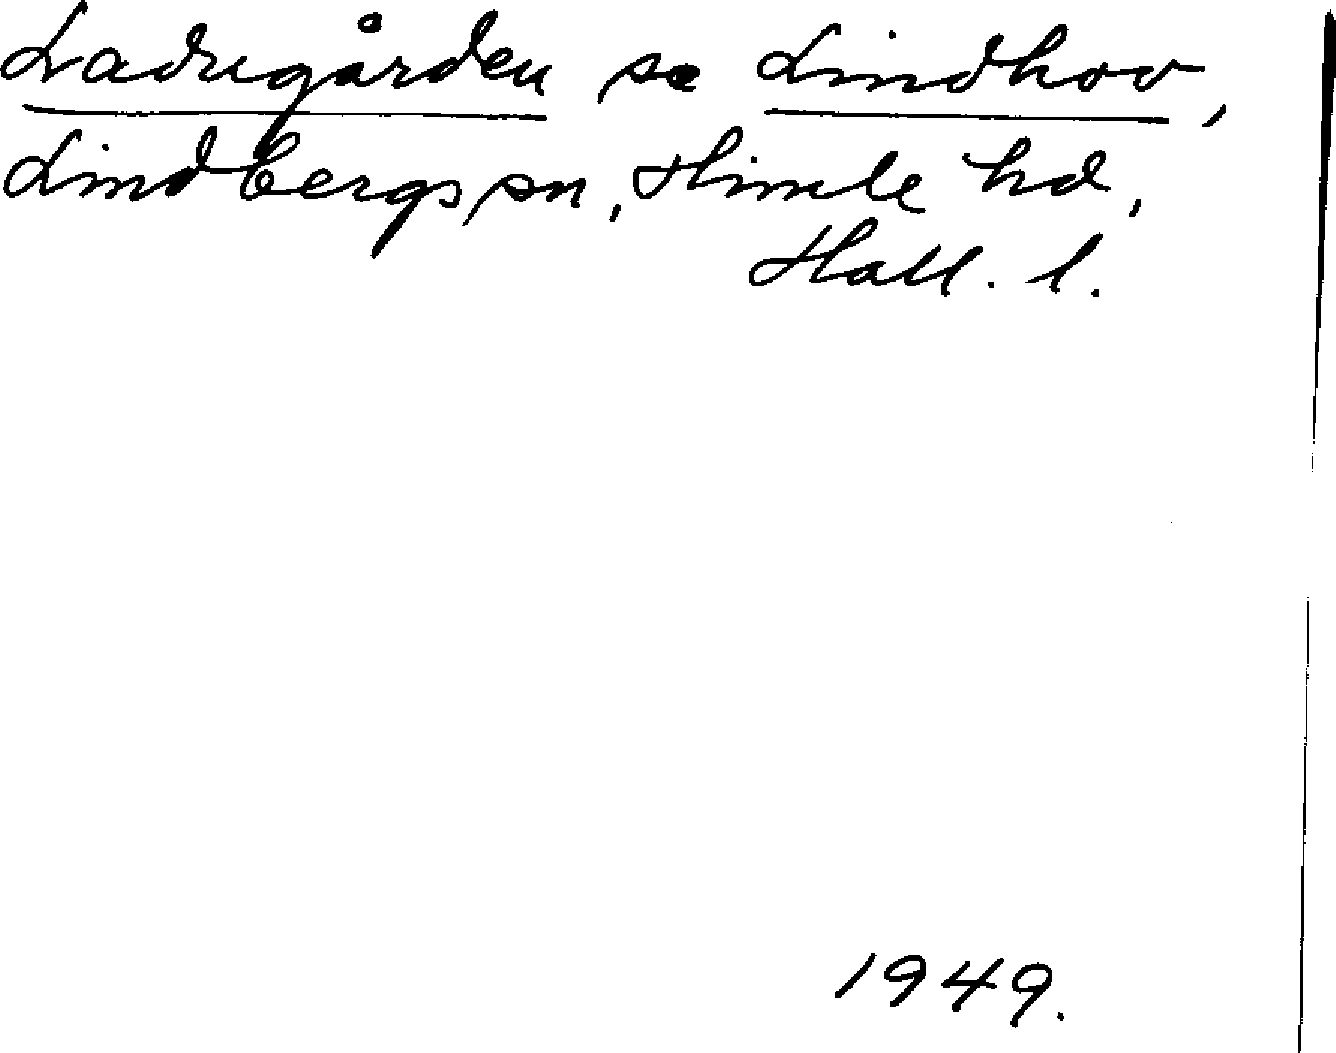 Ladugården se Lindhov,
Lindbergs sn, Himle hd,
Hall. l.
1949.